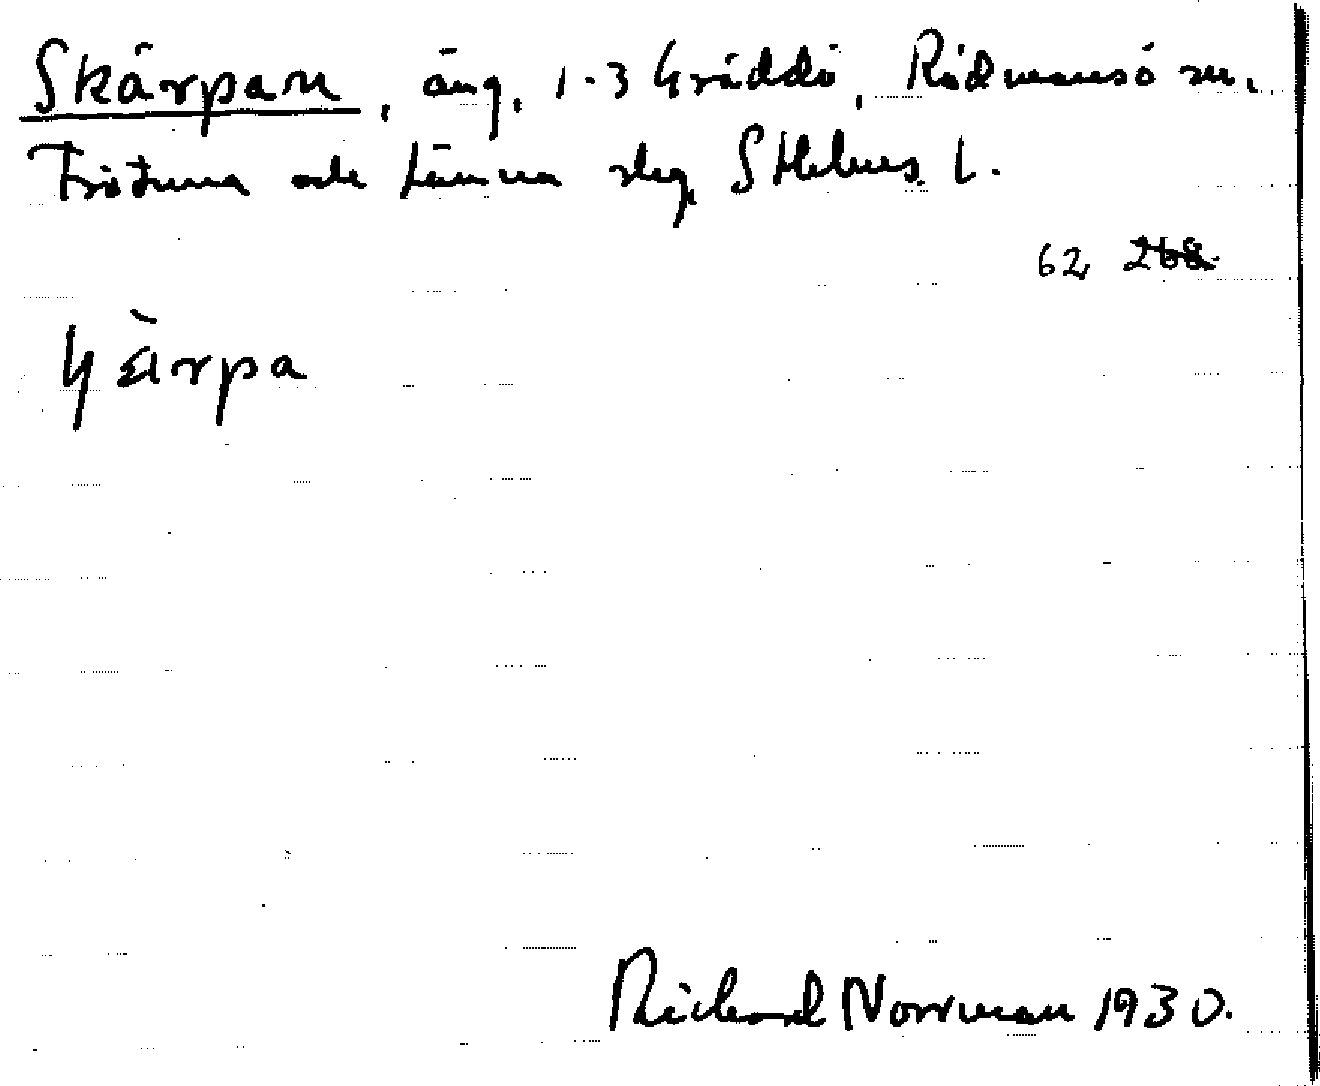 Skärpan, äng, 1-3 Gräddö, Rådmansö sn.
Frötuna och Länna slg, Sthlms. l.
62 268
ɧèrpa
Richard Norrman 1930.